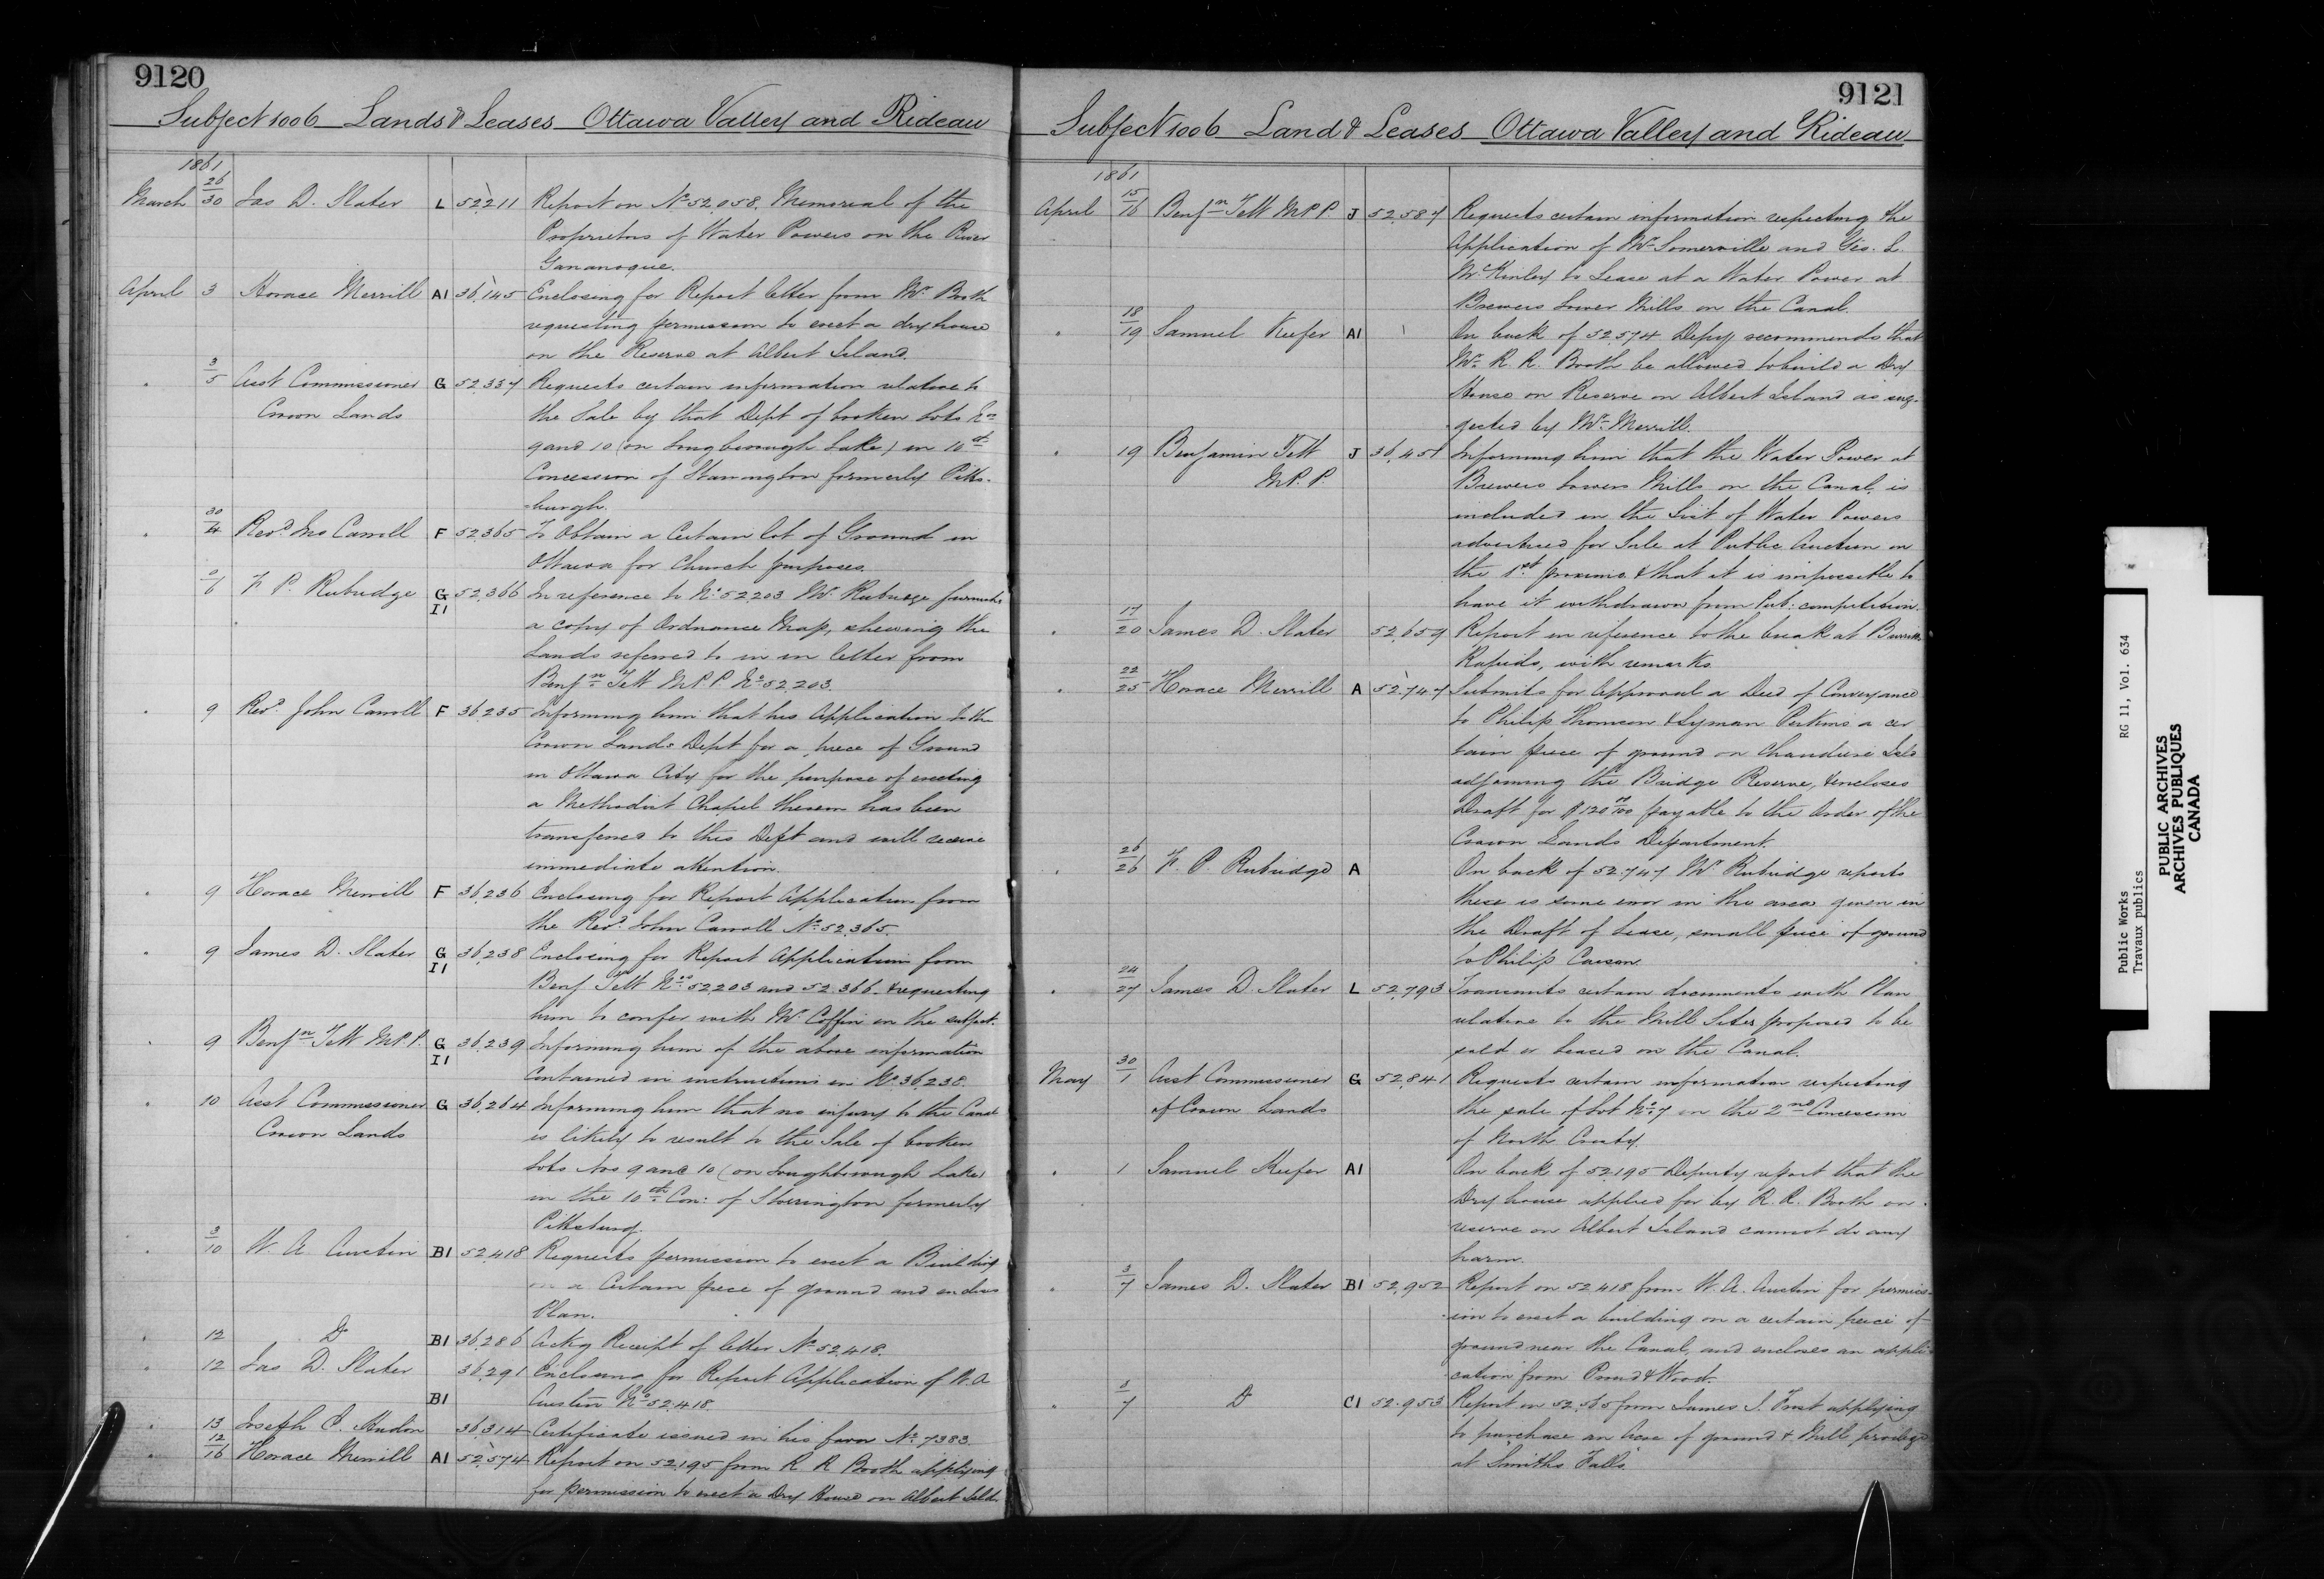 9120
Subject 1006 Lands & Leases Ottawa Valley and Rideau
1861
March 26/30 Jas D. Slater L 52,211 Report on No 52,058. Memorial of the
Proprietors of Water Powers on the River
Gananoque.
April 3 Horace Merrill A1 36,145 Enclosing for Report letter from Mr. Booth
requesting permission to erect a dry house
on the Reserve at Albert Island.
" 3/5 Asst Commissioner G 52,337 Requests certain information relative to
Crown Lands the Sale by that Dept of broken Lots Nos
9 and 10 (on Loughborough Lake) in 10th
Concession of Storrington formerly Pitts-
burgh.
" 30/4 Revd. Jno Carroll F 52,365 To Obtain a Certain lot of Ground in
Ottawa for Church purposes.
" 6 F. P. Rubidge G I1 52,366 In reference to No. 52,203 Mr. Rubidge furnishes
a copy of Ordnance Map, shewing the
Lands referred to in in letter from
Benjn. Tett M.P.P. No 52,203.
" 9 Revd. John Carroll F 36,235 Informing him that his Application to the
Crown Lands Dept for a piece of Ground
in Ottawa City for the purpose of erecting
a Methodist Chapel thereon has been
transferred to this Dept and will receive
immediate attention.
" 9 Horace Merrill F 36,236 Enclosing for Report Application from
the Revd. John Carroll No. 52,365.
" 9 James D. Slater G I1 36,238 Enclosing for Report Application from
Benj Tett Nos 52,203 and 52,366 & requesting
him to confer with Mr. Coffin on the subject.
" 9 Benjn Tett M.P.P. G I1 36,239 Informing him of the above information
Contained in instructions in No 36,238.
" 10 Asst Commissioner G 36,264 Informing him that no injury to the Canal
Crown Lands is likely to result to the Sale of broken
Lots Nos 9 and 10 (on Loughborough Lake)
in the 10th Con: of Storrington formerly
Pittsburg.
" 3/10 W. A. Austin B1 52,418 Requests permission to erect a Building
on a Certain piece of ground and encloses
Plan.
" 12 Do B1 36,286 Ackg Receipt of letter No 52,418.
" 12 Jas D. Slater 36,291 Enclosing for Report Application of W. A
B1 Austin No 52,418
" 13 Joseph C. Hudon 36,314 Certificate issued in his favor No. 7383.
" 12/16 Horace Merrill A1 52,574 Report on 52,195 from R R Booth applying
for permission to erect a Dry House on Albert Isld.
9121
Subject 1006 Land & Leases Ottawa Valley and Rideau
1861
April 15/16 Benjn Tett M.P.P. J 52,587 Requests certain information respecting the
Application of Mr. Somerville and Geo. L.
McKinley to Lease at a Water Power at
Brewers Lower Mills on the Canal.
" 18/19 Samuel Keefer A1 On back of 52,574 Depy recommends that
Mr. R. R. Booth be allowed to build a Dry
House on Reserve on Albert Island as sug-
gested by Mr. Merrill.
" 19 Benjamin Tett J 36,451 Informing him that the Water Power at
M.P.P. Brewers Lowers Mills on the Canal, is
included in the List of Water Powers
advertised for Sale at Public Auction on
the 1st proximo & that it is impossible to
have it withdrawn from Pub: competition.
" 17/20 James D. Slater 52,659 Report in reference to the break at Burritts
Rapids, with remarks
" 22/25 Horace Merrill A 52,747 Submits for Approval a Deed of Conveyance
to Philip Thomson & Lyman Perkins a cer
tain piece of ground on Chaudiere Isld
adjoining the Bridge Reserve, & encloses
Draft for $120 00/100 payable to the Order of the
Crown Lands Department.
" 26/26 F. P. Rubidge A On back of 52,747 Mr. Rubidge reports
there is some error in the area given in
the Draft of Lease, small piece of ground
to Philip Carson.
" 24/27 James D. Slater L 52,793 Transmits certain documents with Plan
relative to the Mill Sites proposed to be
sold or leased on the Canal.
May 30/1 Asst Commissioner G 52,841 Requests certain information respecting
of Crown Lands the sale of Lot No 7 in the 2nd Concession
of North Crosby.
" 1 Samuel Keefer A1 On back of 52,195 Deputy report that the
Dry house applied for by R. R. Booth on
reserve on Albert Island cannot do any
harm.
" 3/7 James D. Slater B1 52,952 Report on 52,418 from W. A. Austin for permiss-
ion to erect a building on a certain piece of
ground near the Canal, and encloses an appli-
cation from & Wood.
" 3/7 Do C1 52,953 Report on from James I. Frost applying
to purchase an Acre of ground & Mill privilege
at Smiths Falls.
Public Works RG 11, Vol. 634
Travaux publics
PUBLIC ARCHIVES
ARCHIVES PUBLIQUES
CANADA